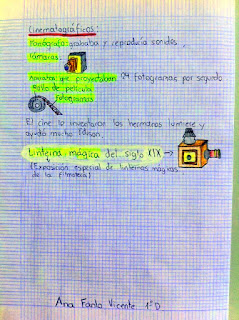 Cinematográficos:
Fonógrafo: grababa y reproducía sonidos,
cámaras
Aparatos que proyectaban 24 fotogramas por segundo
Rollo de película
fotogramas
El cine lo inventaron los hermanos lumiere y
ayudó mucho Edison.
Linterna mágica del siglo XIX →
(Exposición especial de linternas mágicas
de la filmoteca)
Ana Vicente 1ºD